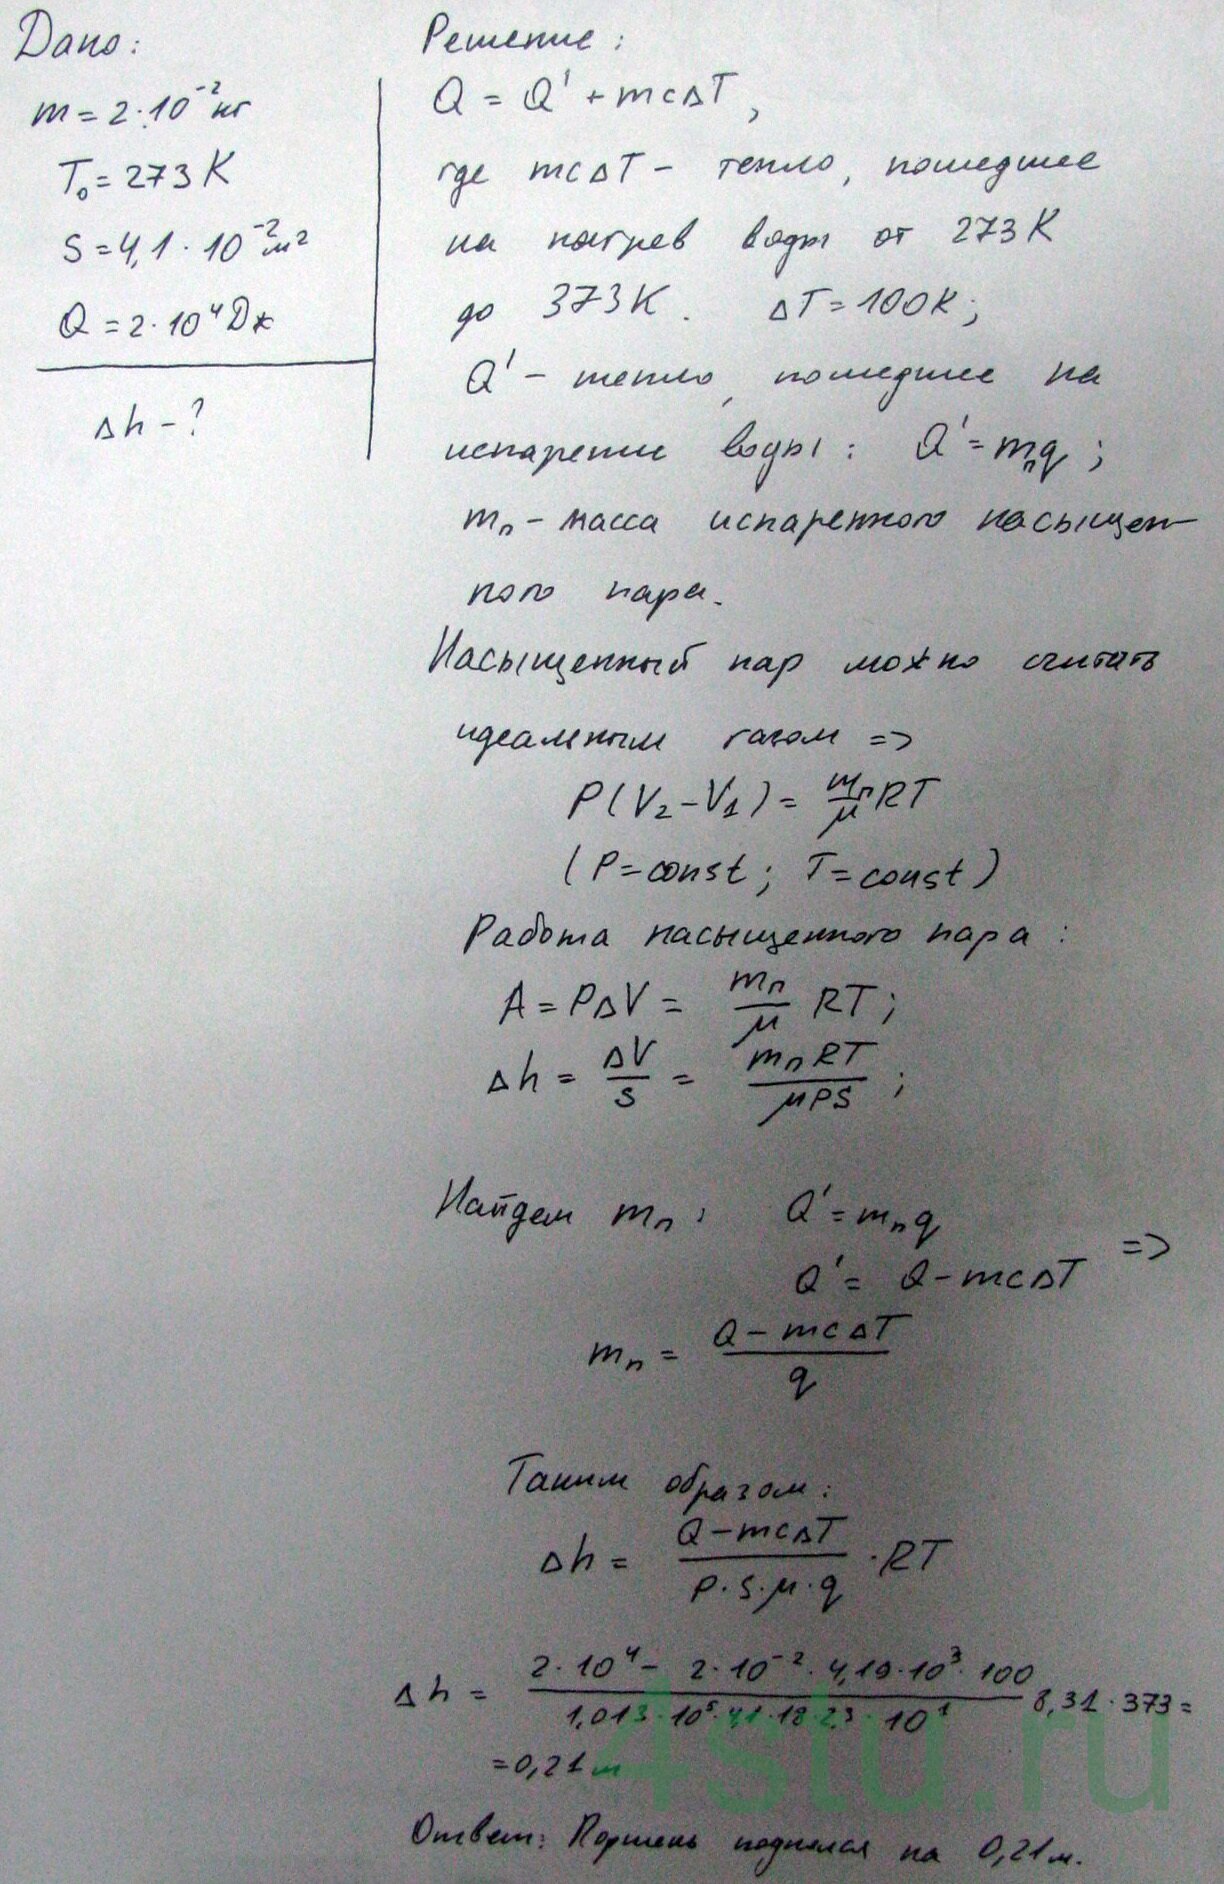 Дано:
m = 2·10⁻² кг
T₀ = 273 K
S = 4,1·10⁻² м²
Q = 2·10⁴ Дж
Δh - ?
Решение:
Q = Q' + mcΔT,
где mcΔT - тепло, пошедшее
на нагрев воды от 273 K
до 373 K. ΔT = 100 K;
Q' - тепло, пошедшее на
испарение воды: Q' = mₙq;
mₙ - масса испаренного насыщен-
ного пара.
Насыщенный пар можно считать
идеальным газом =>
P(V₂-V₁) = mₙ/μ RT
(P = const; T = const)
Работа насыщенного пара:
A = PΔV = mₙ/μ RT;
Δh = ΔV/S = mₙRT/μPS;
Найдем mₙ: Q' = mₙq
Q' = Q - mcΔT =>
mₙ = (Q - mcΔT)/q
Таким образом:
Δh = (Q - mcΔT)/(P·S·μ·q) · RT
Δh = (2·10⁴ - 2·10⁻²·4,19·10³·100)/(1,013·10⁵·4,1·18·2,3·10¹) 8,31·373 =
= 0,21 м
Ответ: Поршень поднялся на 0,21 м.
4stu.ru